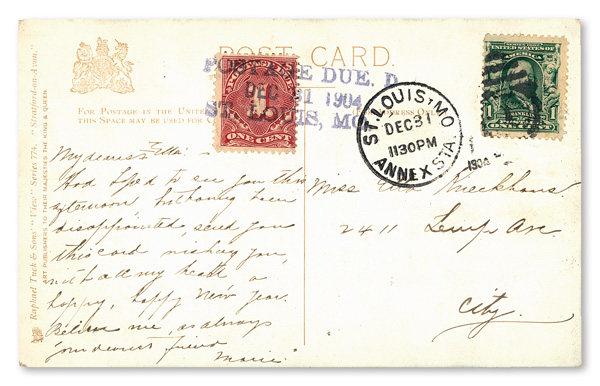 POST CARD.
FOR POSTAGE IN THE UNITED
THIS SPACE MAY BE USED FOR
ADDRESS ONE
POSTAGE DUE. D.
DEC 31 1904
ST. LOUIS, MO.
POSTAGE DUE
1
ONE CENT
ST. LOUIS, MO.
DEC 31
1130PM
ANNEX STA.
1904
UNITED STATES OF AMERICA
1 FRANKLIN 1
ONE CENT
Raphael Tuck & Sons' "View" Series 774. "Stratford-on-Avon."
ART PUBLISHERS TO THEIR MAJESTIES THE KING & QUEEN
My dearest Ella:
Had hoped to see you this
afternoon but having been
disappointed, send you
this card wishing you,
with all my heart a
happy, happy New Year.
Believe me, as always
your dearest friend
Marie.
Miss Ella
2411 Lemp Ave.
City.